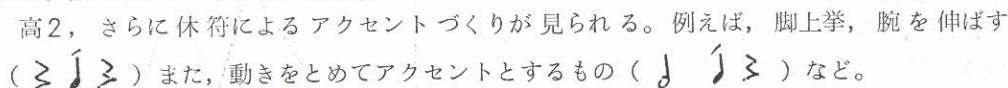 高2，さらに休符によるアクセントづくりが見られる。例えば，脚上挙，腕を伸ばす
（ ）また，動きをとめてアクセントとするもの（ ）など。